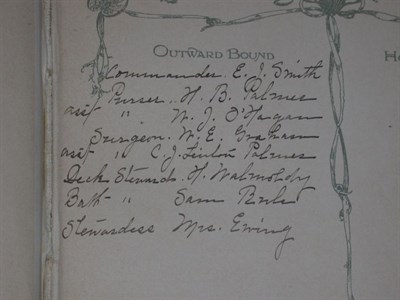 OUTWARD BOUND
H
Commander E. J. Smith
Purser .. H. B. Palmer
asst " W. J. O'Hagan
Surgeon. W. E. Graham
asst " C. J. Fenton Palmer
Deck Stewards. H. Walmoldy
Bath " Sam
Stewardess Mrs. Ewing